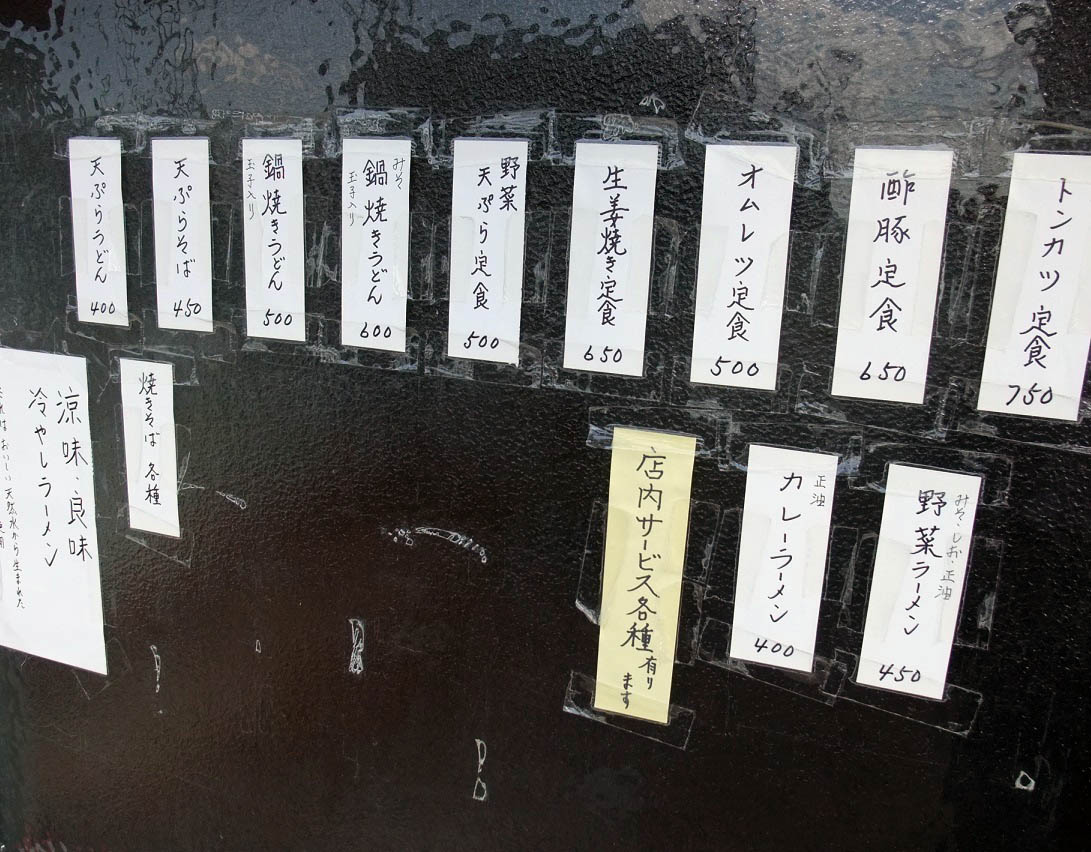 トンカツ定食
750
酢豚定食
650
オムレツ定食
500
生姜焼き定食
650
野菜
天ぷら定食
500
みそ
鍋焼きうどん
玉子入り
600
鍋焼きうどん
玉子入り
500
天ぷらそば
450
天ぷらうどん
400
みそ・しお・正油
野菜ラーメン
450
正油
カレーラーメン
400
店内サービス各種有り
ます
焼きそば 各種
涼味・良味
冷やしラーメン
おいしい天然水から生まれた